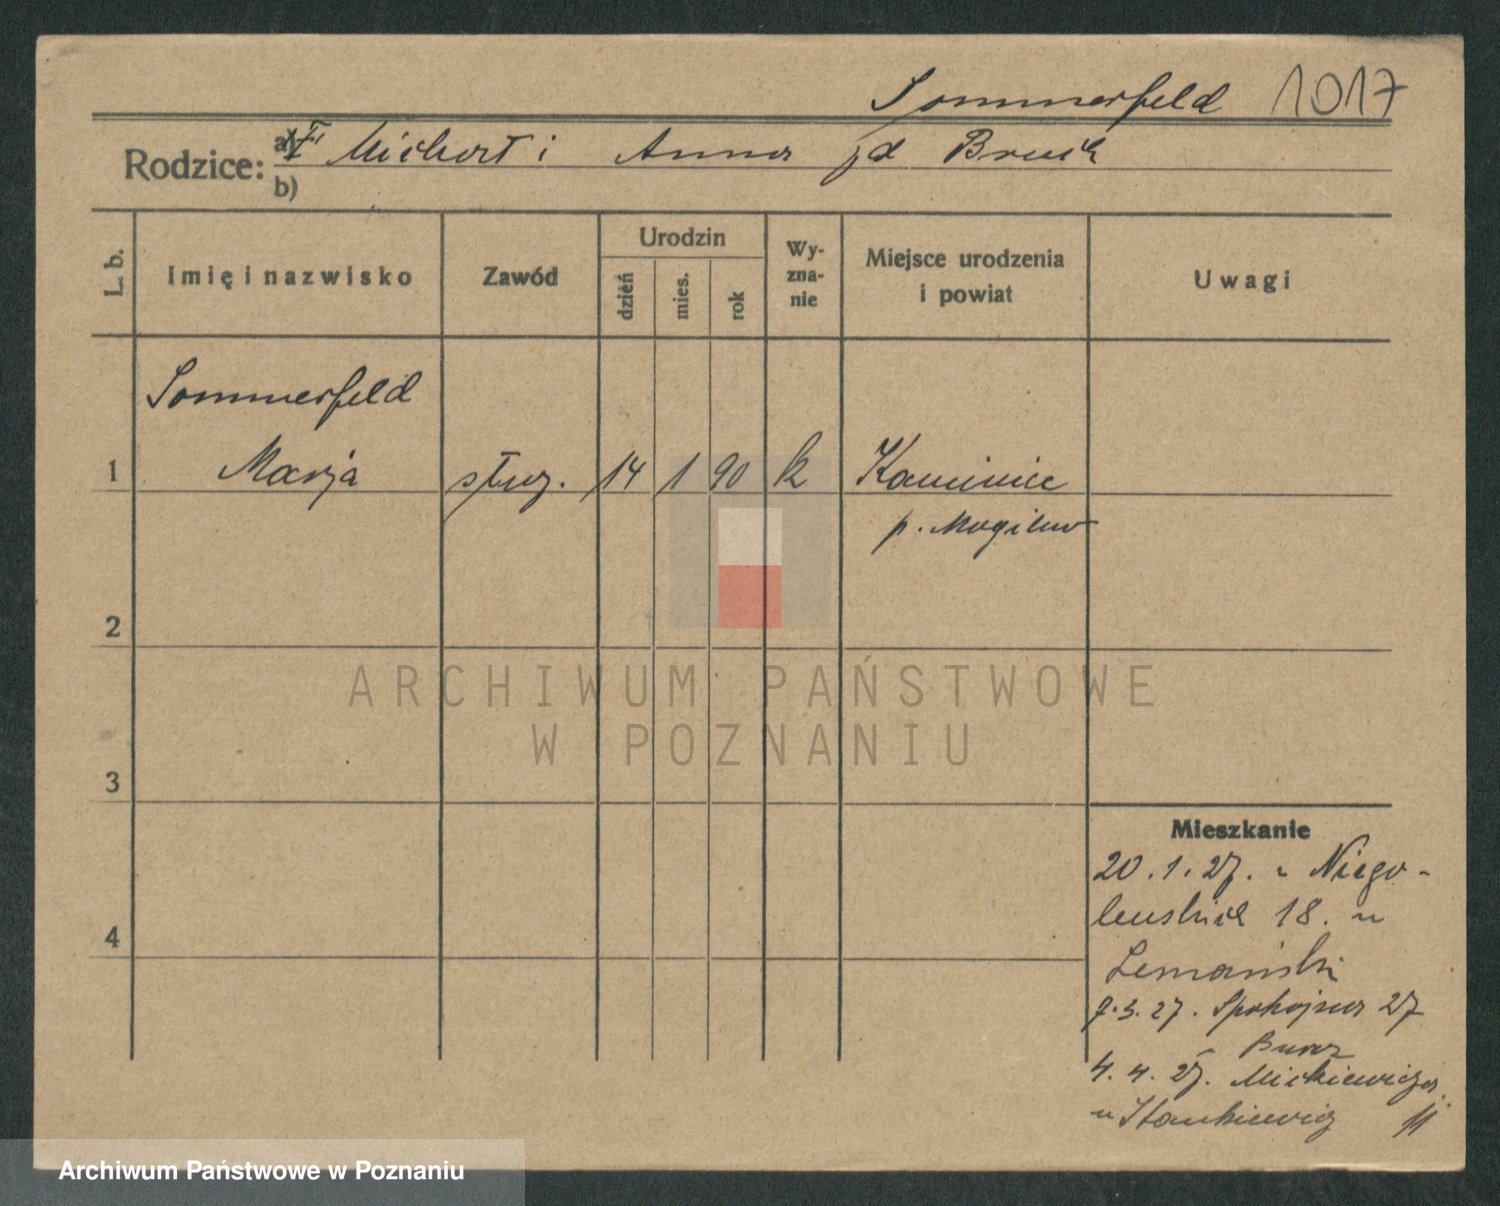 Sommerfeld 1017
Rodzice: a) Michał i Anna zd Bruch
b)
L. b. Imię i nazwisko Zawód Urodzin dzień mies. rok Wyznanie Miejsce urodzenia i powiat Uwagi
Sommerfeld
1 Marja służ. 14 1 90 k Kamieniec
p. Mogilno
2
ARCHIWUM PAŃSTWOWE
W POZNANIU
3
Mieszkanie
20.1.27. u Niego-
lewskich 18. u
4
Lemański
9.3.27. Spokojna 27
4.4.27. Mickiewicza
u Stankiewicz 11
Archiwum Państwowe w Poznaniu